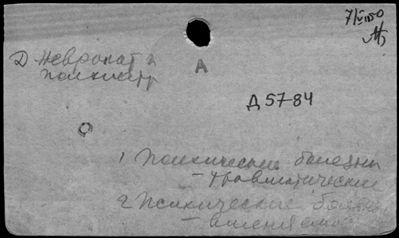 7/V 1950
Д Невропат
психиатр
А
Д 57-84
1 Психические болезни
- травматические
2 Психические
-